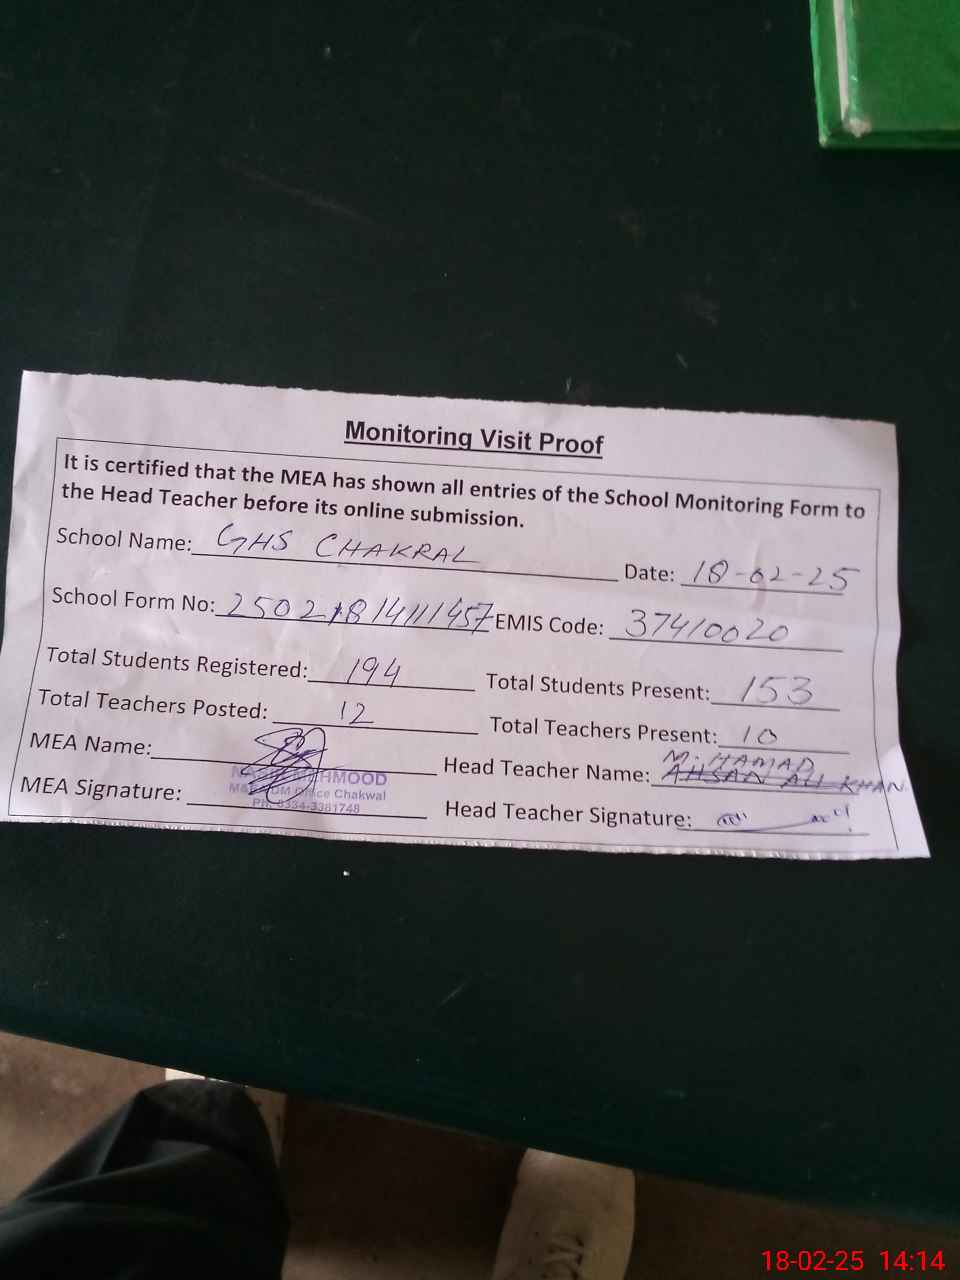 Monitoring Visit Proof
It is certified that the MEA has shown all entries of the School Monitoring Form to
the Head Teacher before its online submission.
School Name: GHS CHAKRAL Date: 18-02-25
School Form No: 25021814111457 EMIS Code: 37410020
Total Students Registered: 194 Total Students Present: 153
Total Teachers Posted: 12 Total Teachers Present: 10
MEA Name: Head Teacher Name: M. HAMAD
AHSAN ALI KHAN
MEHMOOD
Office Chakwal
MEA Signature: Head Teacher Signature:
PH: 0334-3361748
18-02-25 14:14